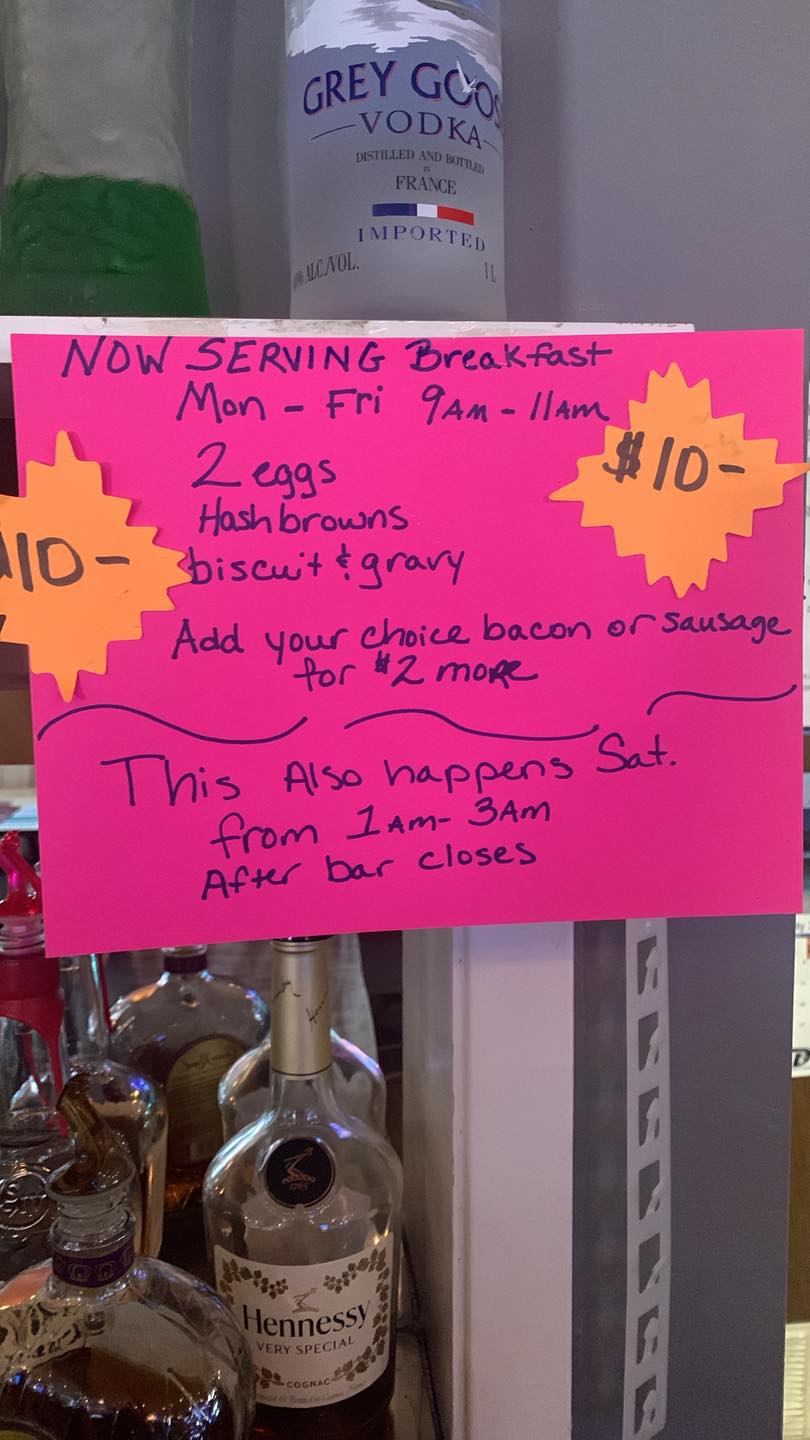 GREY GOOS
VODKA
DISTILLED AND BOTTLED
IN
FRANCE
IMPORTED
ALC./VOL.
1L
NOW SERVING Breakfast
Mon - Fri 9AM - 11AM
$10-
10-
2 eggs
Hashbrowns
biscuit & gravy
Add your choice bacon or sausage
for $2 more
This Also happens Sat.
from 1AM - 3AM
After bar closes
1765
Hennessy
VERY SPECIAL
COGNAC